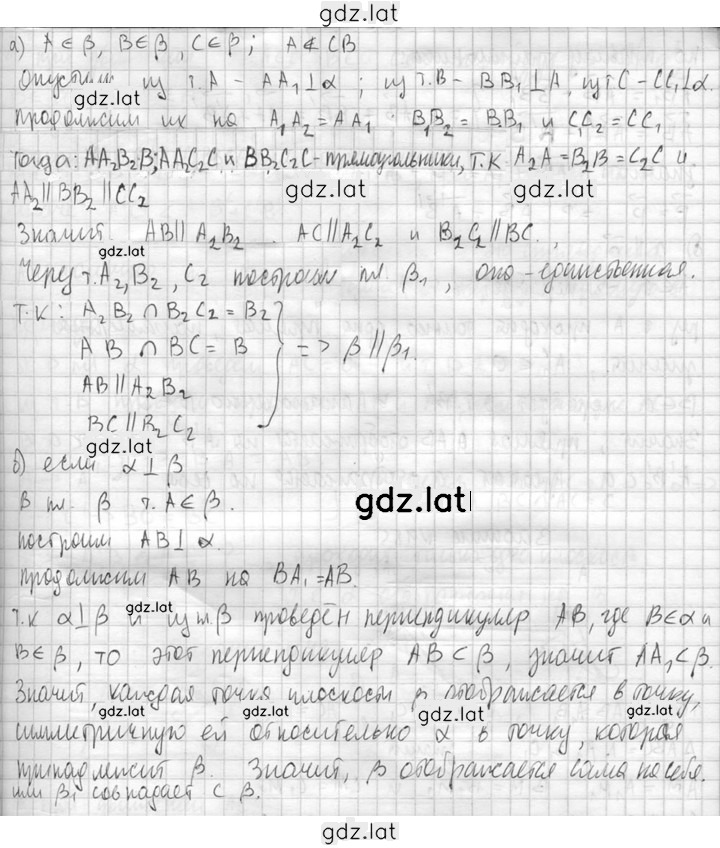 gdz.lat
а) A ∈ β, B ∈ β, C ∈ β; A ∉ CB
Опустим из т.A - AA₁⊥α; из т.B - BB₁⊥A, из т.C - CC₁⊥α.
gdz.lat
продолжим их на A₁A₂=AA₁ B₁B₂=BB₁ и C₁C₂=CC₁
Тогда: AA₂B₂B; AA₂C₂C и BB₂C₂C - прямоугольники, т.к A₂A=B₂B=C₂C и
gdz.lat gdz.lat
AA₂||BB₂||CC₂
Значит AB||A₂B₂ AC||A₂C₂ и B₂C₂||BC.,
gdz.lat
Через т.A₂, B₂, C₂ построим пл. β₁, она - единственная.
т.к: A₂B₂ ∩ B₂C₂ = B₂
AB ∩ BC = B => β||β₁.
AB||A₂B₂
BC||B₂C₂
gdz.lat
б) если α⊥β
в пл. β т.A∈β.
gdz.lat
построим AB⊥α.
продолжим AB на BA₁=AB.
gdz.lat
т.к α⊥β и из пл.β проведён перпендикуляр AB, где B∈α и
B∈β, то этот перпендикуляр AB⊂β, значит AA₁⊂β.
Значит, каждая точка плоскости β отображается в точку,
gdz.lat gdz.lat gdz.lat gdz.lat
симметричную ей относительно α в точку, которая
принадлежит β. Значит, β отображается сама на себя.
или β₁ совпадает с β.
gdz.lat